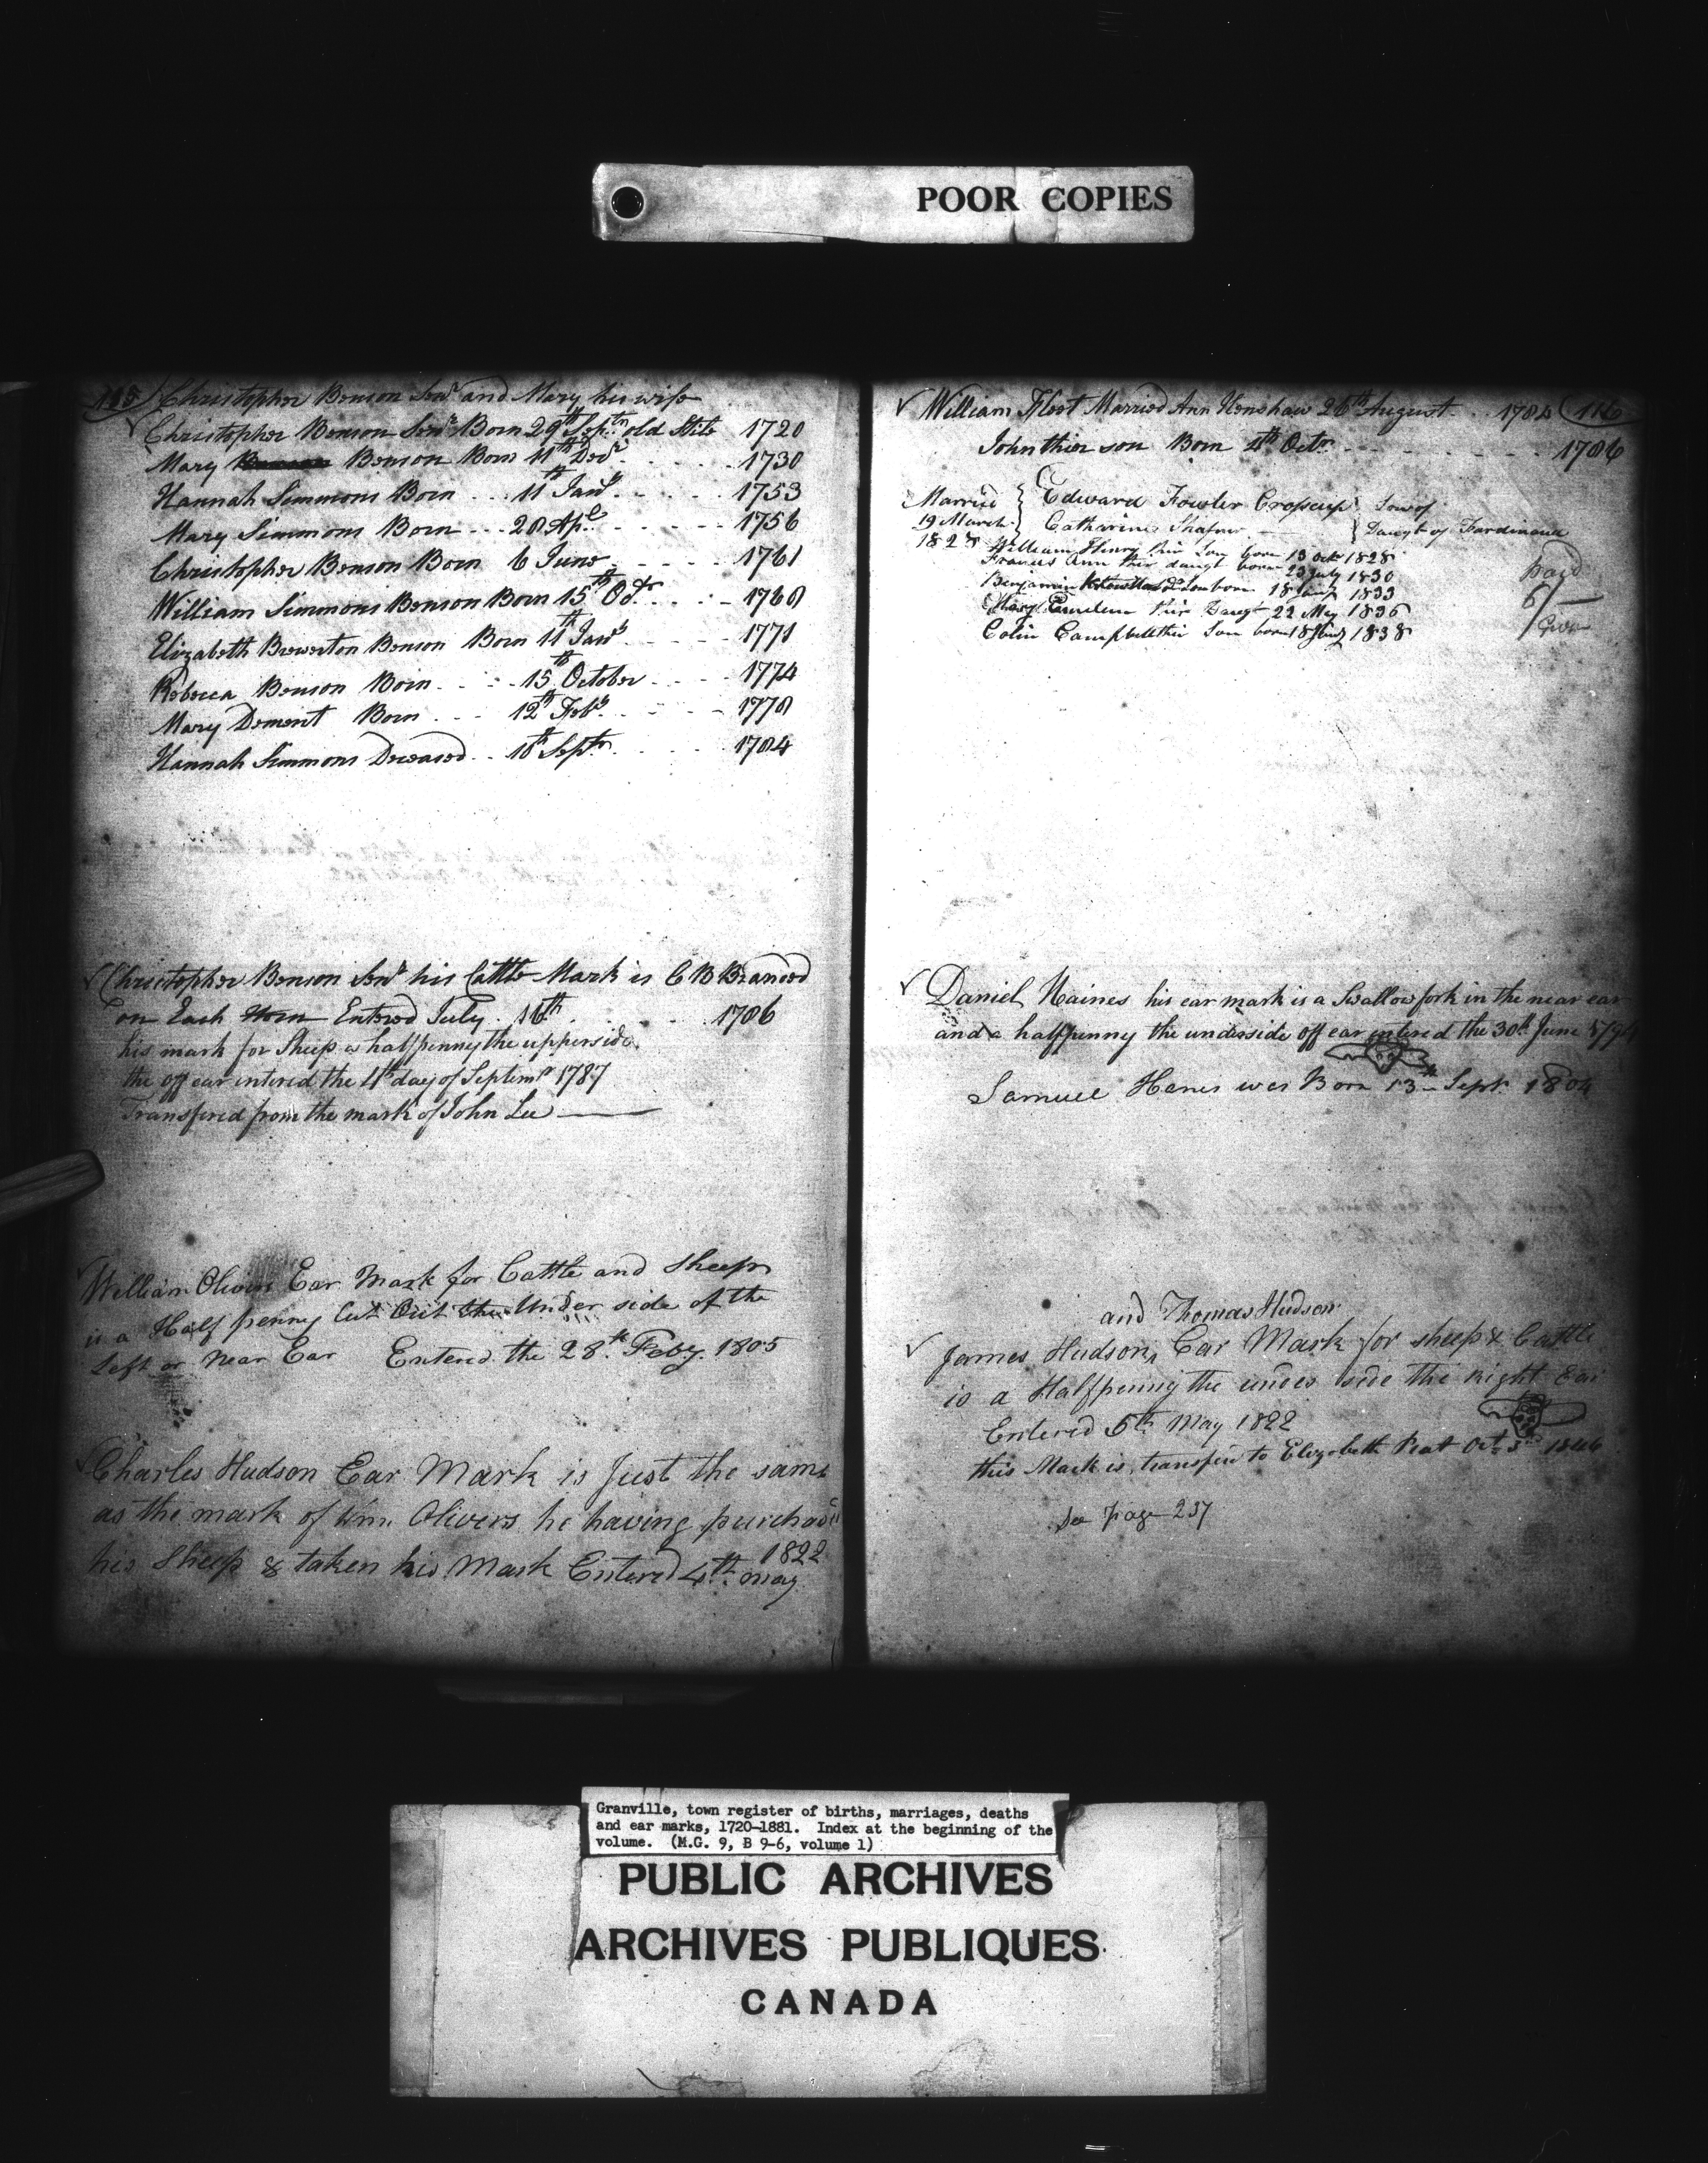 POOR COPIES
115 Christopher Benson Senr and Mary his wife
Christopher Benson Senr Born 29th Septr old Stile 1720
Mary Benson Born 11th Decr 1730
Hannah Simmons Born 11th Jany 1753
Mary Simmons Born 28 Apl 1756
Christopher Benson Born 6 June 1761
William Simmons Benson Born 15th Octr 1768
Elizabeth Brewerton Benson Born 11th Jany 1771
Rebecca Benson Born 15th October 1774
Mary Dement Born 12th Feby 1778
Hannah Simmons Deceased 18th Septr 1784
Christopher Benson Senr his Cattle Mark is C B Branded
on Each Horn Entered July 16th 1786
his mark for Sheep a halfpenny the upperside
the off ear entered the 11th day of Septemr 1787
Transfired from the mark of John Lee
William Olivers Ear Mark for Cattle and Sheep
is a Half penny Cut Out the Under side of the
Left or Near Ear Entered the 28th Feby 1805
Charles Hudson Ear Mark is Just the same
as the mark of Wm. Olivers he having purchasd
his Sheep & taken his Mark Entered 4th May 1822
William Fleet Married Ann Henshaw 26th August 1784 116
John thier son Born 4th Octr 1786
Married { Edward Fowler Cropsup } Son of
19 March Catharine Shafner } Daugt of Ferdinand
1828 William Henry thir Son born 13 Oct 1828
Frances Ann thir daugt born 23 July 1830
Benjamin born 18 1833
Mary thir Daugt 22 May 1836
Colin Campbell thir Son born 18 1838
paid
6/
Daniel Haines his ear mark is a Swallow fork in the near ear
and a halfpenny the underside off ear entered the 30th June 1794
Samuel Hanes was Born 13th Sept. 1804
and Thomas Hudson
James Hudson, Ear Mark for sheep & Cattle
is a Halfpenny the under side the right Ear
Entered 5th May 1822
this Mark is transfird to Elizabeth Peat Oct 3 1846
See page 237
Granville, town register of births, marriages, deaths
and ear marks, 1720-1881. Index at the beginning of the
volume. (M.G. 9, B 9-6, volume 1)
PUBLIC ARCHIVES
ARCHIVES PUBLIQUES
CANADA